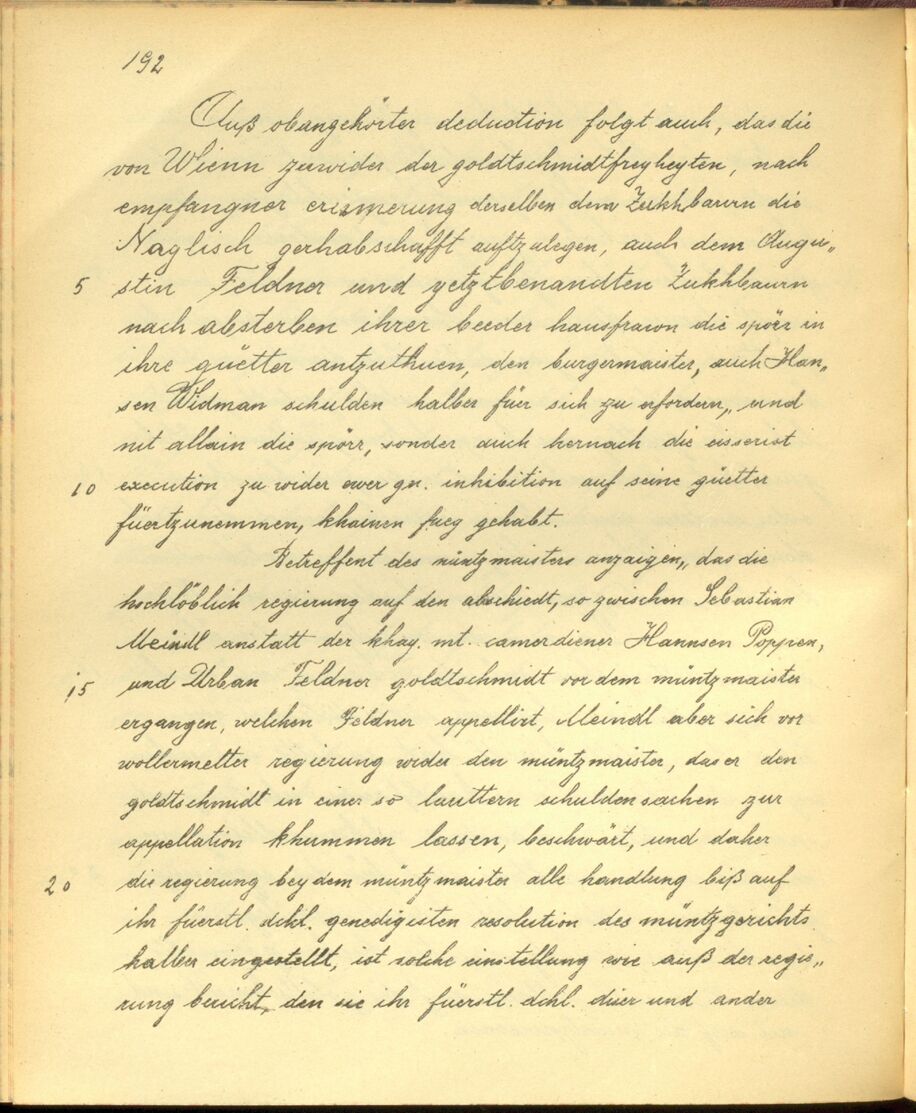 192
Auß obangehörter deduction folgt auch, das die
von Wienn zuwider der goldtschmidtfreyheyten, nach
empfangner erinnerung derselben dem Zukhbaurn die
Naglisch gerhabschafft auftzulegen, auch dem Augu„
5 stin Feldner und yetztbenandten Zukhbaurn
nach absterben ihrer beeder hausfrawn die spörr in
ihre güetter antzuthuen, den burgermaister, auch Han„
sen Widman schulden halber füer sich zu erfordern„ und
nit allain die spörr, sonder auch hernach die eisserist
10 execution zu wider ewer gn. inhibition auf seine güetter
füertzunemmen, khainen fueg gehabt.
Betreffent des müntzmaisters anzaigen„ das die
hochlöblich regierung auf den abschiedt, so zwischen Sebastian
Meindl anstatt der khay. mt. camerdiener Hannsen Poppen,
15 und Urban Feldner goldtschmidt vor dem müntzmaister
ergangen, welchen Feldner appellirt, Meindl aber sich vor
wollermelter regierung wider den müntzmaister, das er den
goldtschmidt in einer so lauttern schulden sachen zur
appellation khummen lassen, beschwärt, und daher
20 die regierung bey dem müntzmaister alle handlung biß auf
ihr füerstl. dchl. genedigisten resolution des müntzgerichts
halber eingestellt, ist solche einstellung wie auß der regie„
rung bericht, den sie ihr füerstl. dchl. düer und ander